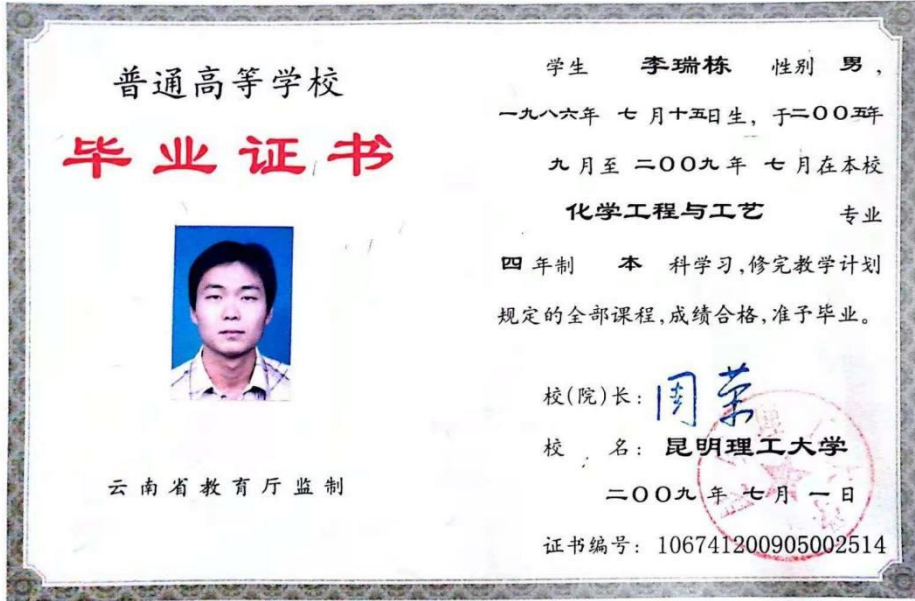 普通高等学校
毕业证书
云南省教育厅监制
学生 李瑞栋 性别 男，
一九八六年 七 月十五日生，于二〇〇五年
九 月至 二〇〇九 年 七 月在本校
化学工程与工艺 专业
四 年制 本 科学习，修完教学计划
规定的全部课程，成绩合格，准予毕业。
校(院)长：周荣
校 名：昆明理工大学
二〇〇九 年 七 月 一 日
证书编号：106741200905002514